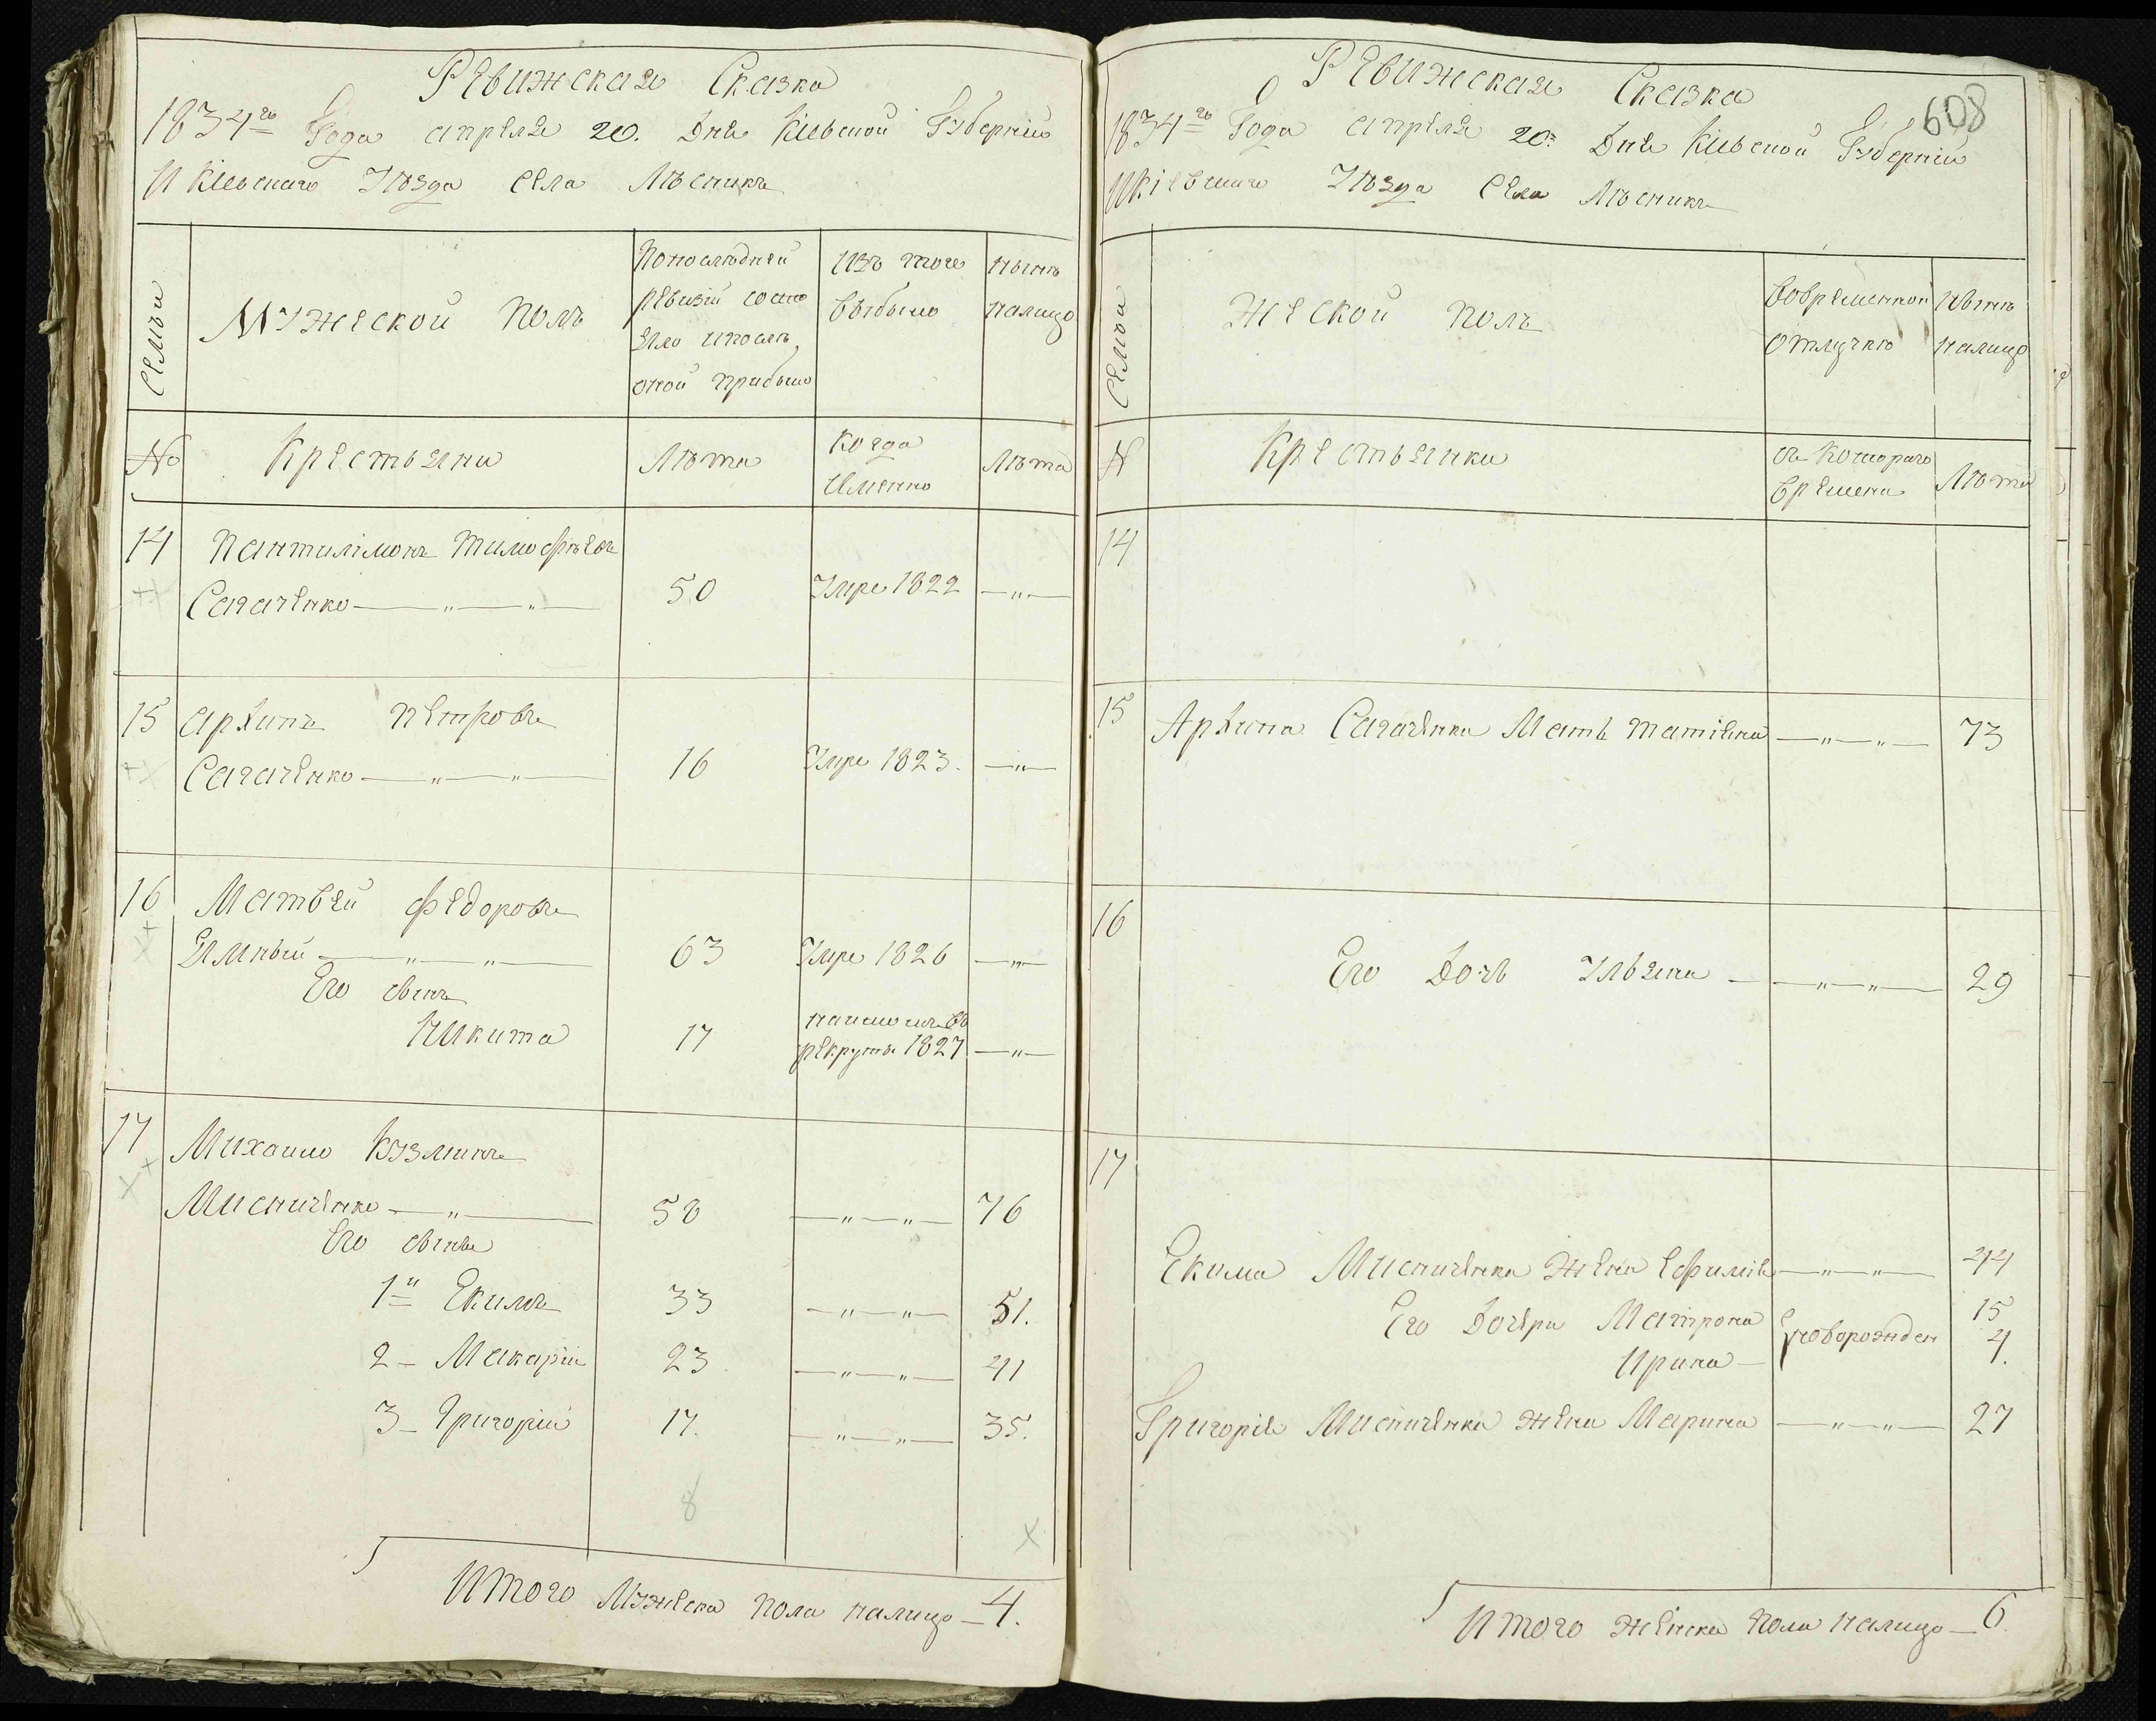 Ревижская Сказка
1834го Года апреля 20. Дня Кіевской Губерніи
И Кіевскаго Уѣзда села Лѣсникъ
Семьи
Мужеской полъ
Попослѣдней
ревизіи состо
яло ипослѣ
оной прибыло
Изъ того
выбыло
нынѣ
налицо
№
Крестьяни
Лѣта
Когда
Именно
Лѣта
14
Пантилімонъ Тимофѣевъ
Сагаченко — " — " —
50
Умре 1822
— " —
15
Архипъ Петровъ
Сагаченко — " — " —
16
Умре 1823.
— " —
16
Матвей Федоровъ
Ямный — " — " —
63
Умре 1826
— " —
Его сынъ
Никита
17
рекруты 1827
— " —
17
Михаило Кузминъ
Мисниченко — " —
58
— " — " —
76
Его сыны
1й Екимъ
33
— " — " —
51.
2 - Макарій
23
— " — " —
41
3 - Григорій
17.
— " — " —
35.
8
Итого Мужеска пола налицо — 4.
608
Ревижская Сказка
1834го Года апреля 20: Дня Кіевской Губерніи
И Кіевскаго Уѣзда Села Лѣсникъ
Семьи
Жеской полъ
Вовременной
отлучкѣ
Нынѣ
налицо
№
Крестьянки
съ Котораго
времени
Лѣта
14
15
Архипа Сагаченка Мать Татіяна — " — " —
73
16
Его Дочь Ульяна — " — " —
29
17
Екима Мисниченка Жена Ефимія — " — " —
44
Его Дочери Матрона
новорожден
15
Ирина —
4.
Григорія Мисниченка жена Марина — " — " —
27
Итого женска пола налицо — 6.